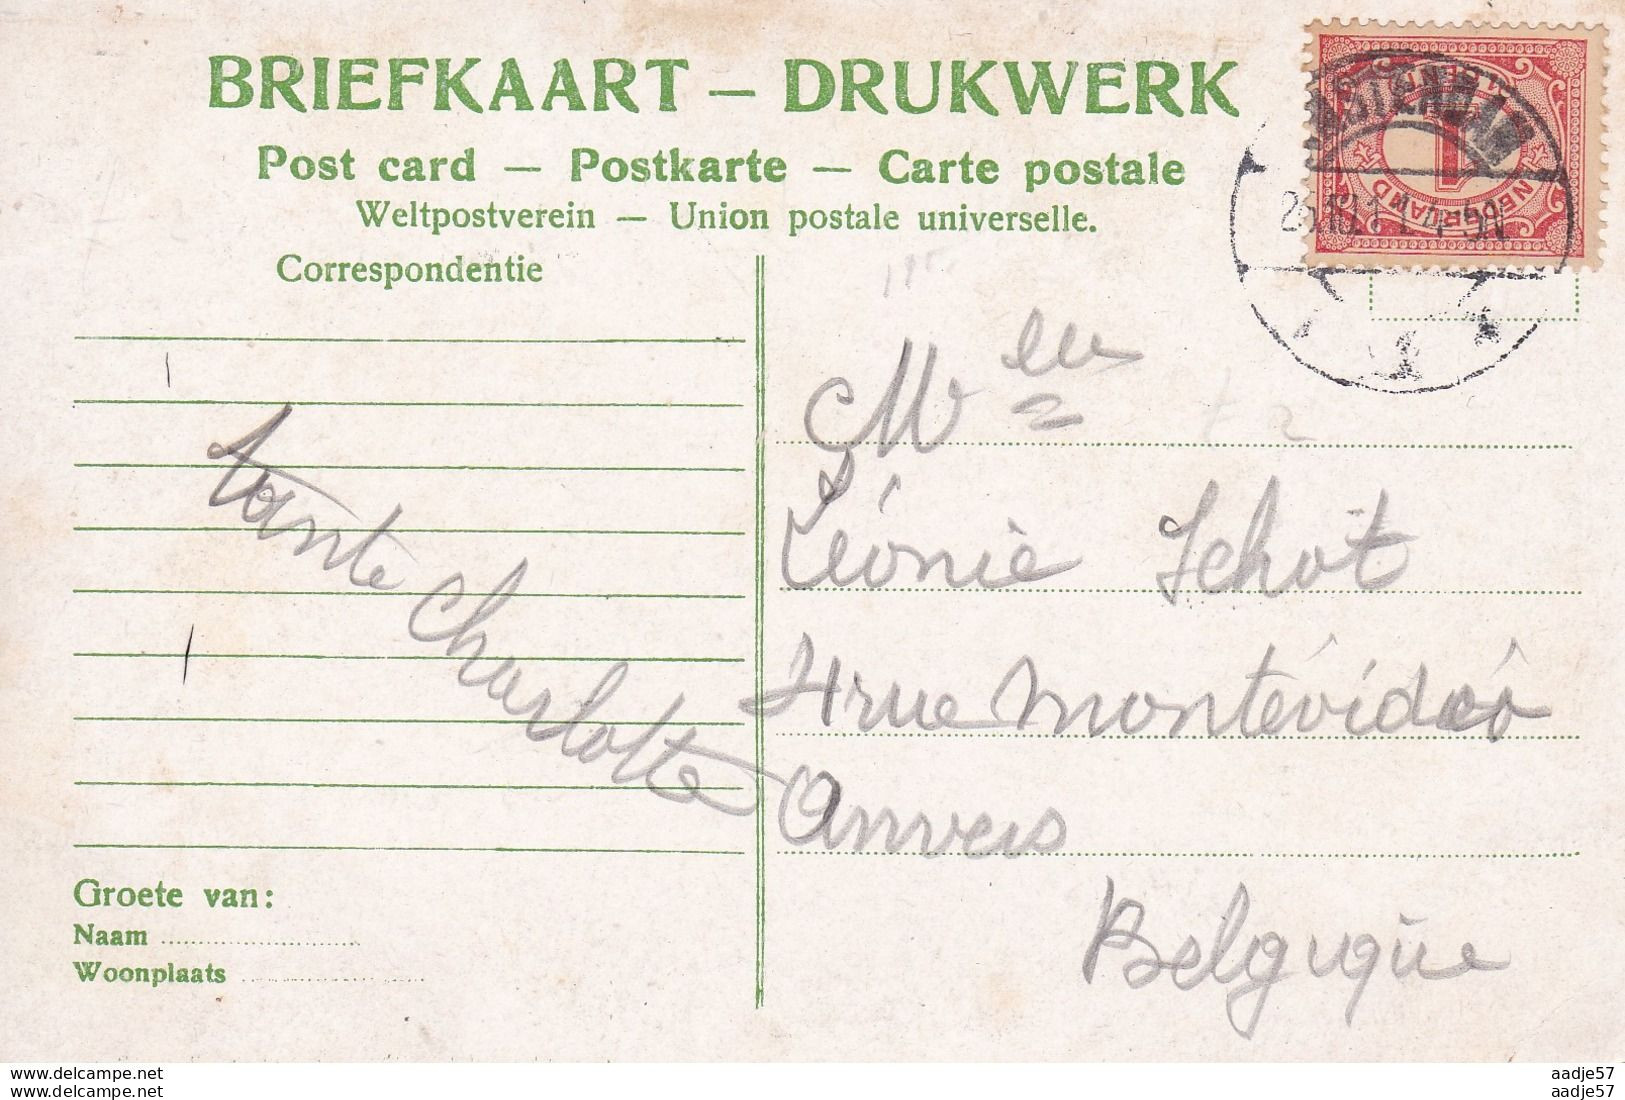 BRIEFKAART — DRUKWERK
Post card — Postkarte — Carte postale
Weltpostverein — Union postale universelle.
Correspondentie
tante Charlotte
Groete van:
Naam
Woonplaats
Mlle
Léonie Schot
rue Montévidéó
Anvers
Belguque
1 CENT
NEDERLAND
AMSTERDAM
www.delcampe.net
www.delcampe.net
aadje57
aadje57